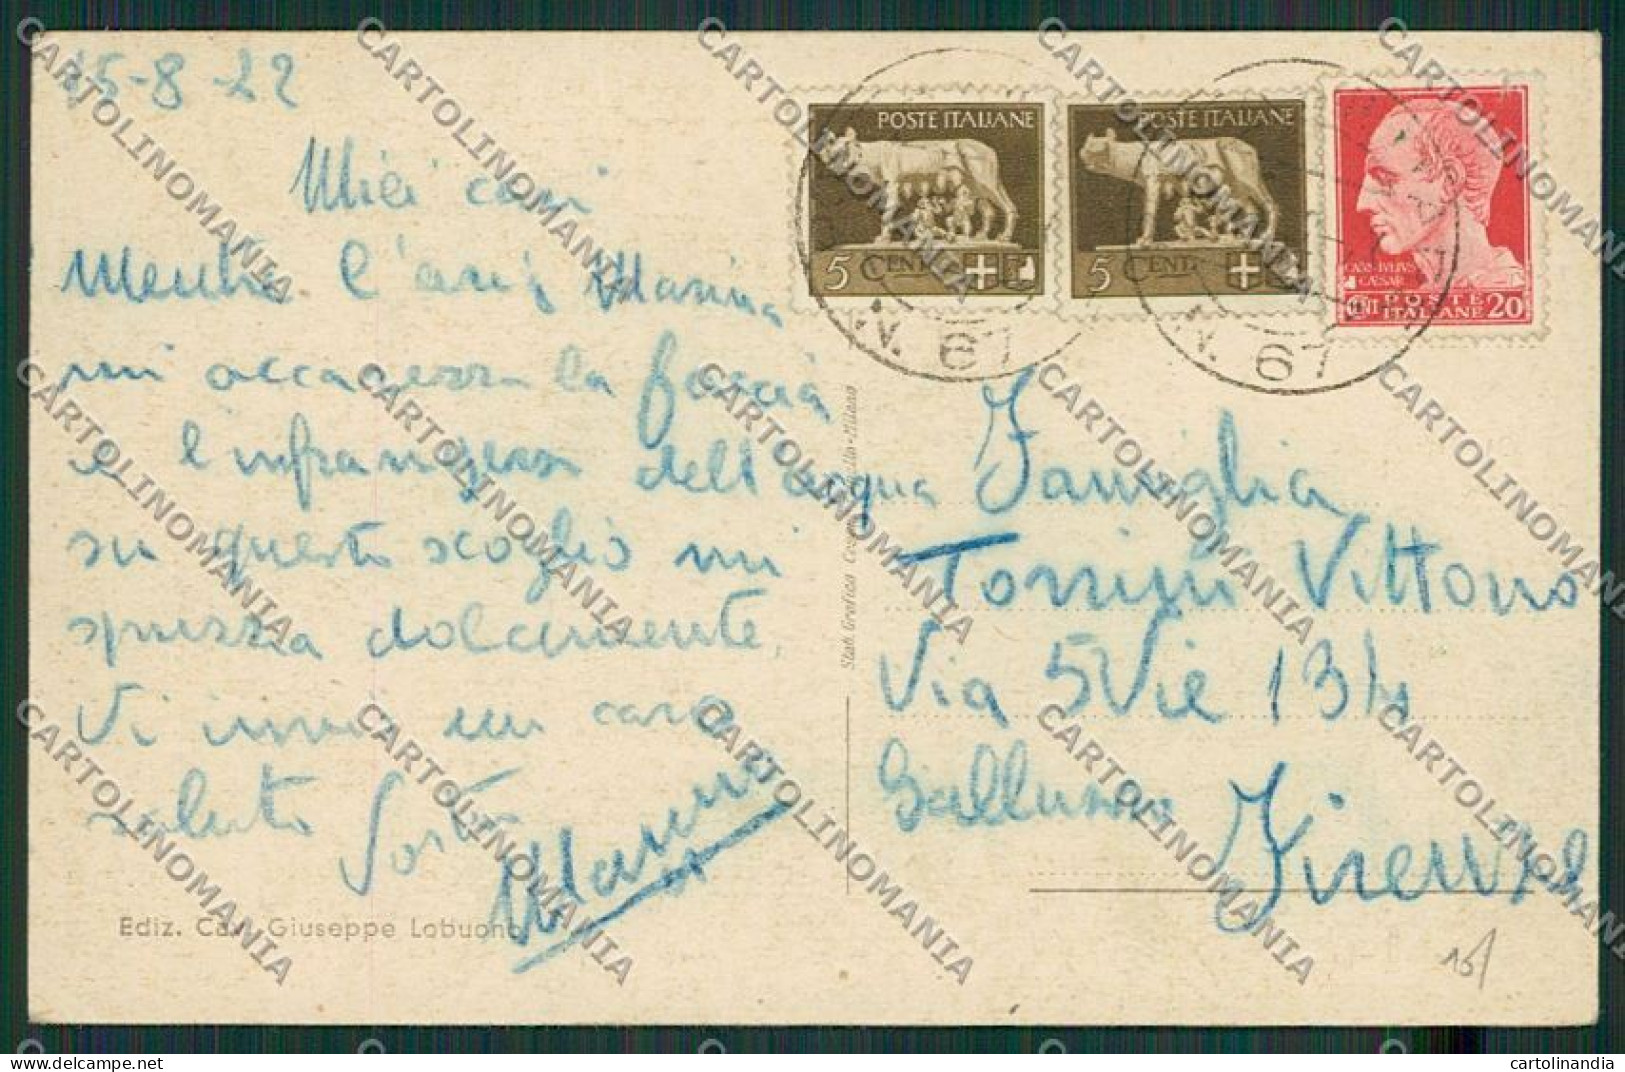 15-8-22
Miei cari
Mentre l'aria Marina
mi accarezza la faccia
e l'infrangersi dell'acqua
su questo scoglio mi
spruzza dolcemente,
Vi invio un caro
saluto Vostro
Ediz. Cav. Giuseppe Lobuono
POSTE ITALIANE
5 CENT.
POSTE ITALIANE
5 CENT.
CAIVS·IVLIVS
CAESAR
CENT POSTE
ITALIANE 20
N. 67
N. 67
Stab. Grafico Milano
Famiglia
Torrini Vittorio
Via 5 Vie 134
Galluzzo
Firenze
15
CARTOLINOMANIA
cartolinandia